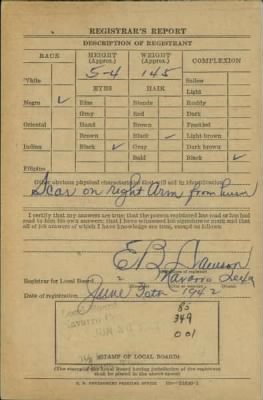 REGISTRAR'S REPORT
DESCRIPTION OF REGISTRANT
RACE HEIGHT (Approx.) WEIGHT (Approx.) COMPLEXION
White 5-4 145 Sallow
EYES HAIR Light
Negro ✓ Blue Blonde Ruddy
Gray Red Dark
Oriental Hazel Brown Freckled
Brown Black ✓ Light brown
Indian Black ✓ Gray Dark brown
Bald Black ✓
Filipino
Other obvious physical characteristics that will aid in identification
Scar on right Arm from burn
I certify that my answers are true; that the person registered has read or has had
read to him his own answers; that I have witnessed his signature or mark and that
all of his answers of which I have knowledge are true, except as follows:
E B
Registrar for Local Board 2 Navarro Texas
Date of registration June 1942
85
349
001
(STAMP OF LOCAL BOARD)
(The stamp of the Local Board having jurisdiction of the registrant
shall be placed in the above space)
U. S. GOVERNMENT PRINTING OFFICE